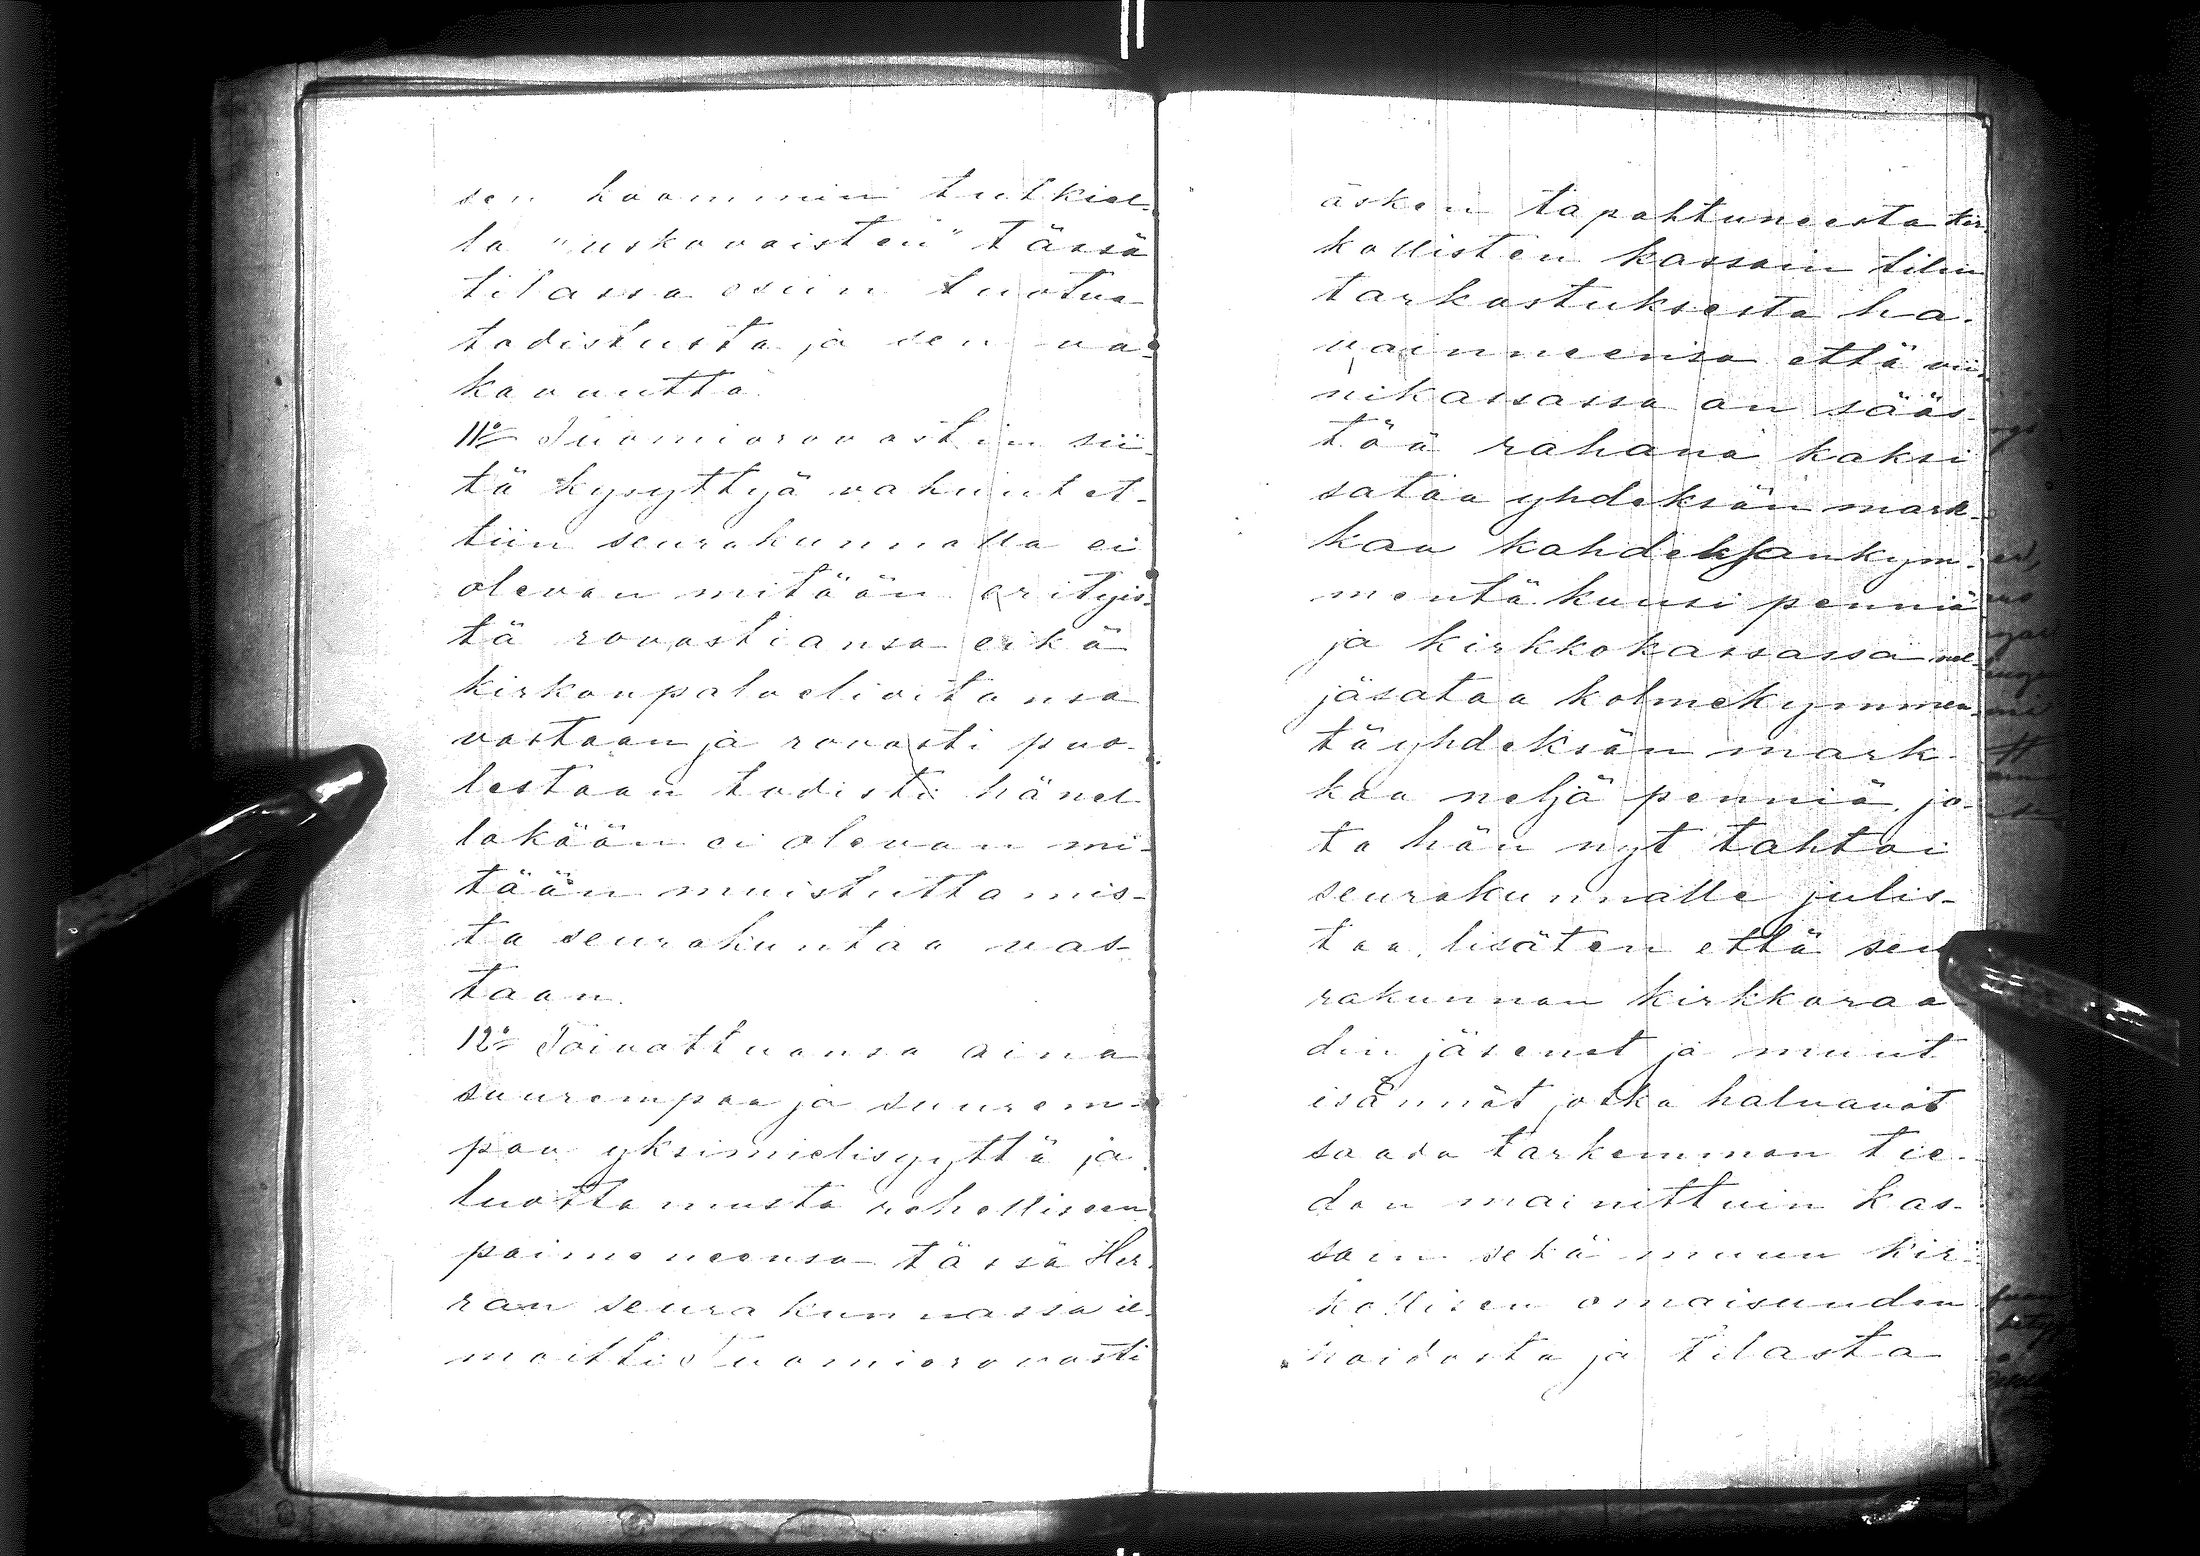 sen haommin tutkiel-
la "uskovaisten" tässä
tilassa esiin tuotua
todistusta ja sen va-
kavuutta.
11o Tuomiorovastin sii-
tä kysyttyä vakuutet-
tiin seurakunnalla ei
olevan mitään erityis-
tä rovastiansa eikä
kirkonpalvelioitansa
vastaan ja rovasti puo-
lestaan todisti hänel-
läkään ei olevan mi-
tään muistuttamis-
ta seurakuntaa vas-
taan.
12o Toivottuansa aina
suurempaa ja suurem-
paa yksimielisyyttä ja
luottamusta rehelliseen
paimeneensa tässä Her-
ran seurakunnassa il-
moitti Tuomiorovasti
äsken tapahtuneesta kir-
kollisten kassain tilin
tarkastuksesta ha-
vainneensa että vii-
nikassassa on sääs-
töä rahana kaksi
sataa yhdeksän mark-
kaa kahdeksankym-
mentä kuusi penniä
ja kirkkokassassa nel-
jäsataa kolmekymmen-
täyhdeksän mark-
kaa neljä penniä, jo-
ta hän nyt tahtoi
seurakunnalle julis-
taa, lisäten että seu-
rakunnan kirkkoraa-
din jäsenet ja muut
isännät jotka haluavat
saada tarkemman tie-
don mainittuin kas-
sain sekä muun kir-
kollisen omaisuuden
hoidosta ja tilasta